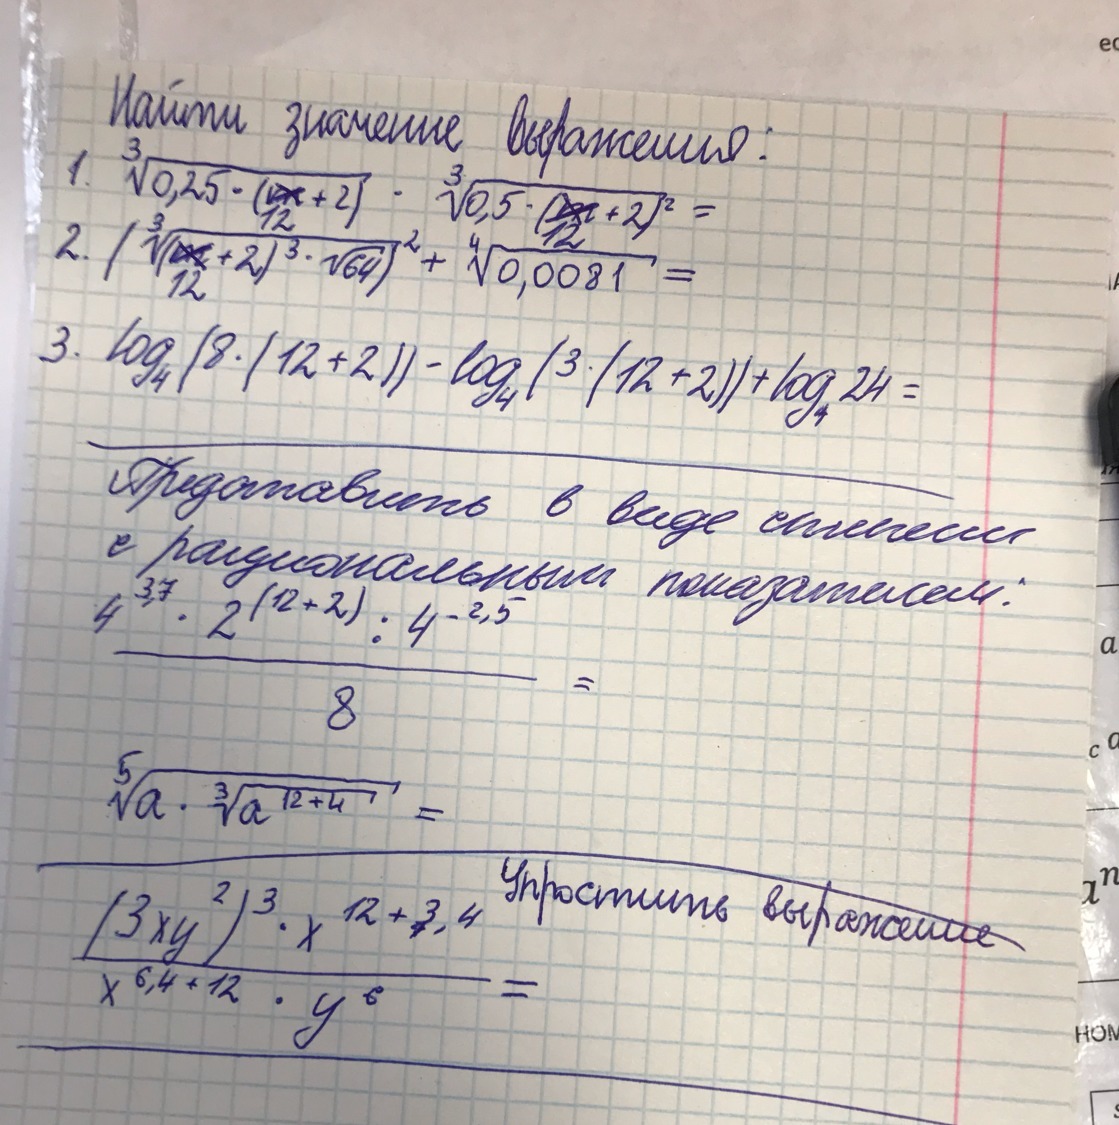 Найти значение выражения:
1. ∛(0,25 · (12 + 2)) · ∛(0,5 · (12 + 2)²) =
2. (∛((12 + 2)³ · √64))² + ∜0,0081 =
3. log₄(8·(12+2)) - log₄(3·(12+2)) + log₄ 24 =
Представить в виде степени
с рациональным показателем:
4^3,7 · 2^(12+2) : 4^-2,5
8 =
⁵√(a · ∛(a^(12+4))) =
Упростить выражение
(3xy²)³ · x^(12+3,4)
x^(6,4+12) · y⁶ =
ес
а
с а
xⁿ
НОМ